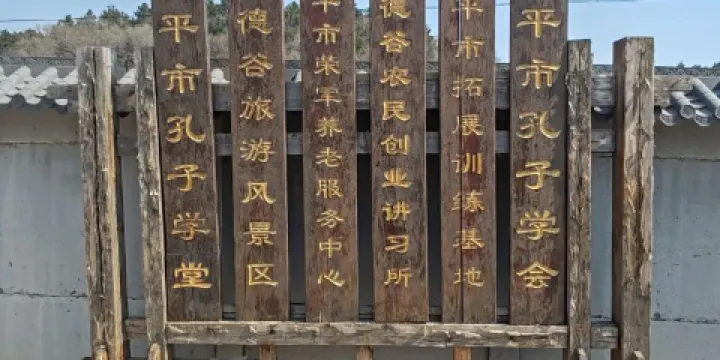 平市孔子学堂
德谷旅游风景区
平市荣军养老服务中心
德谷农民创业讲习所
平市拓展训练基地
平市孔子学会